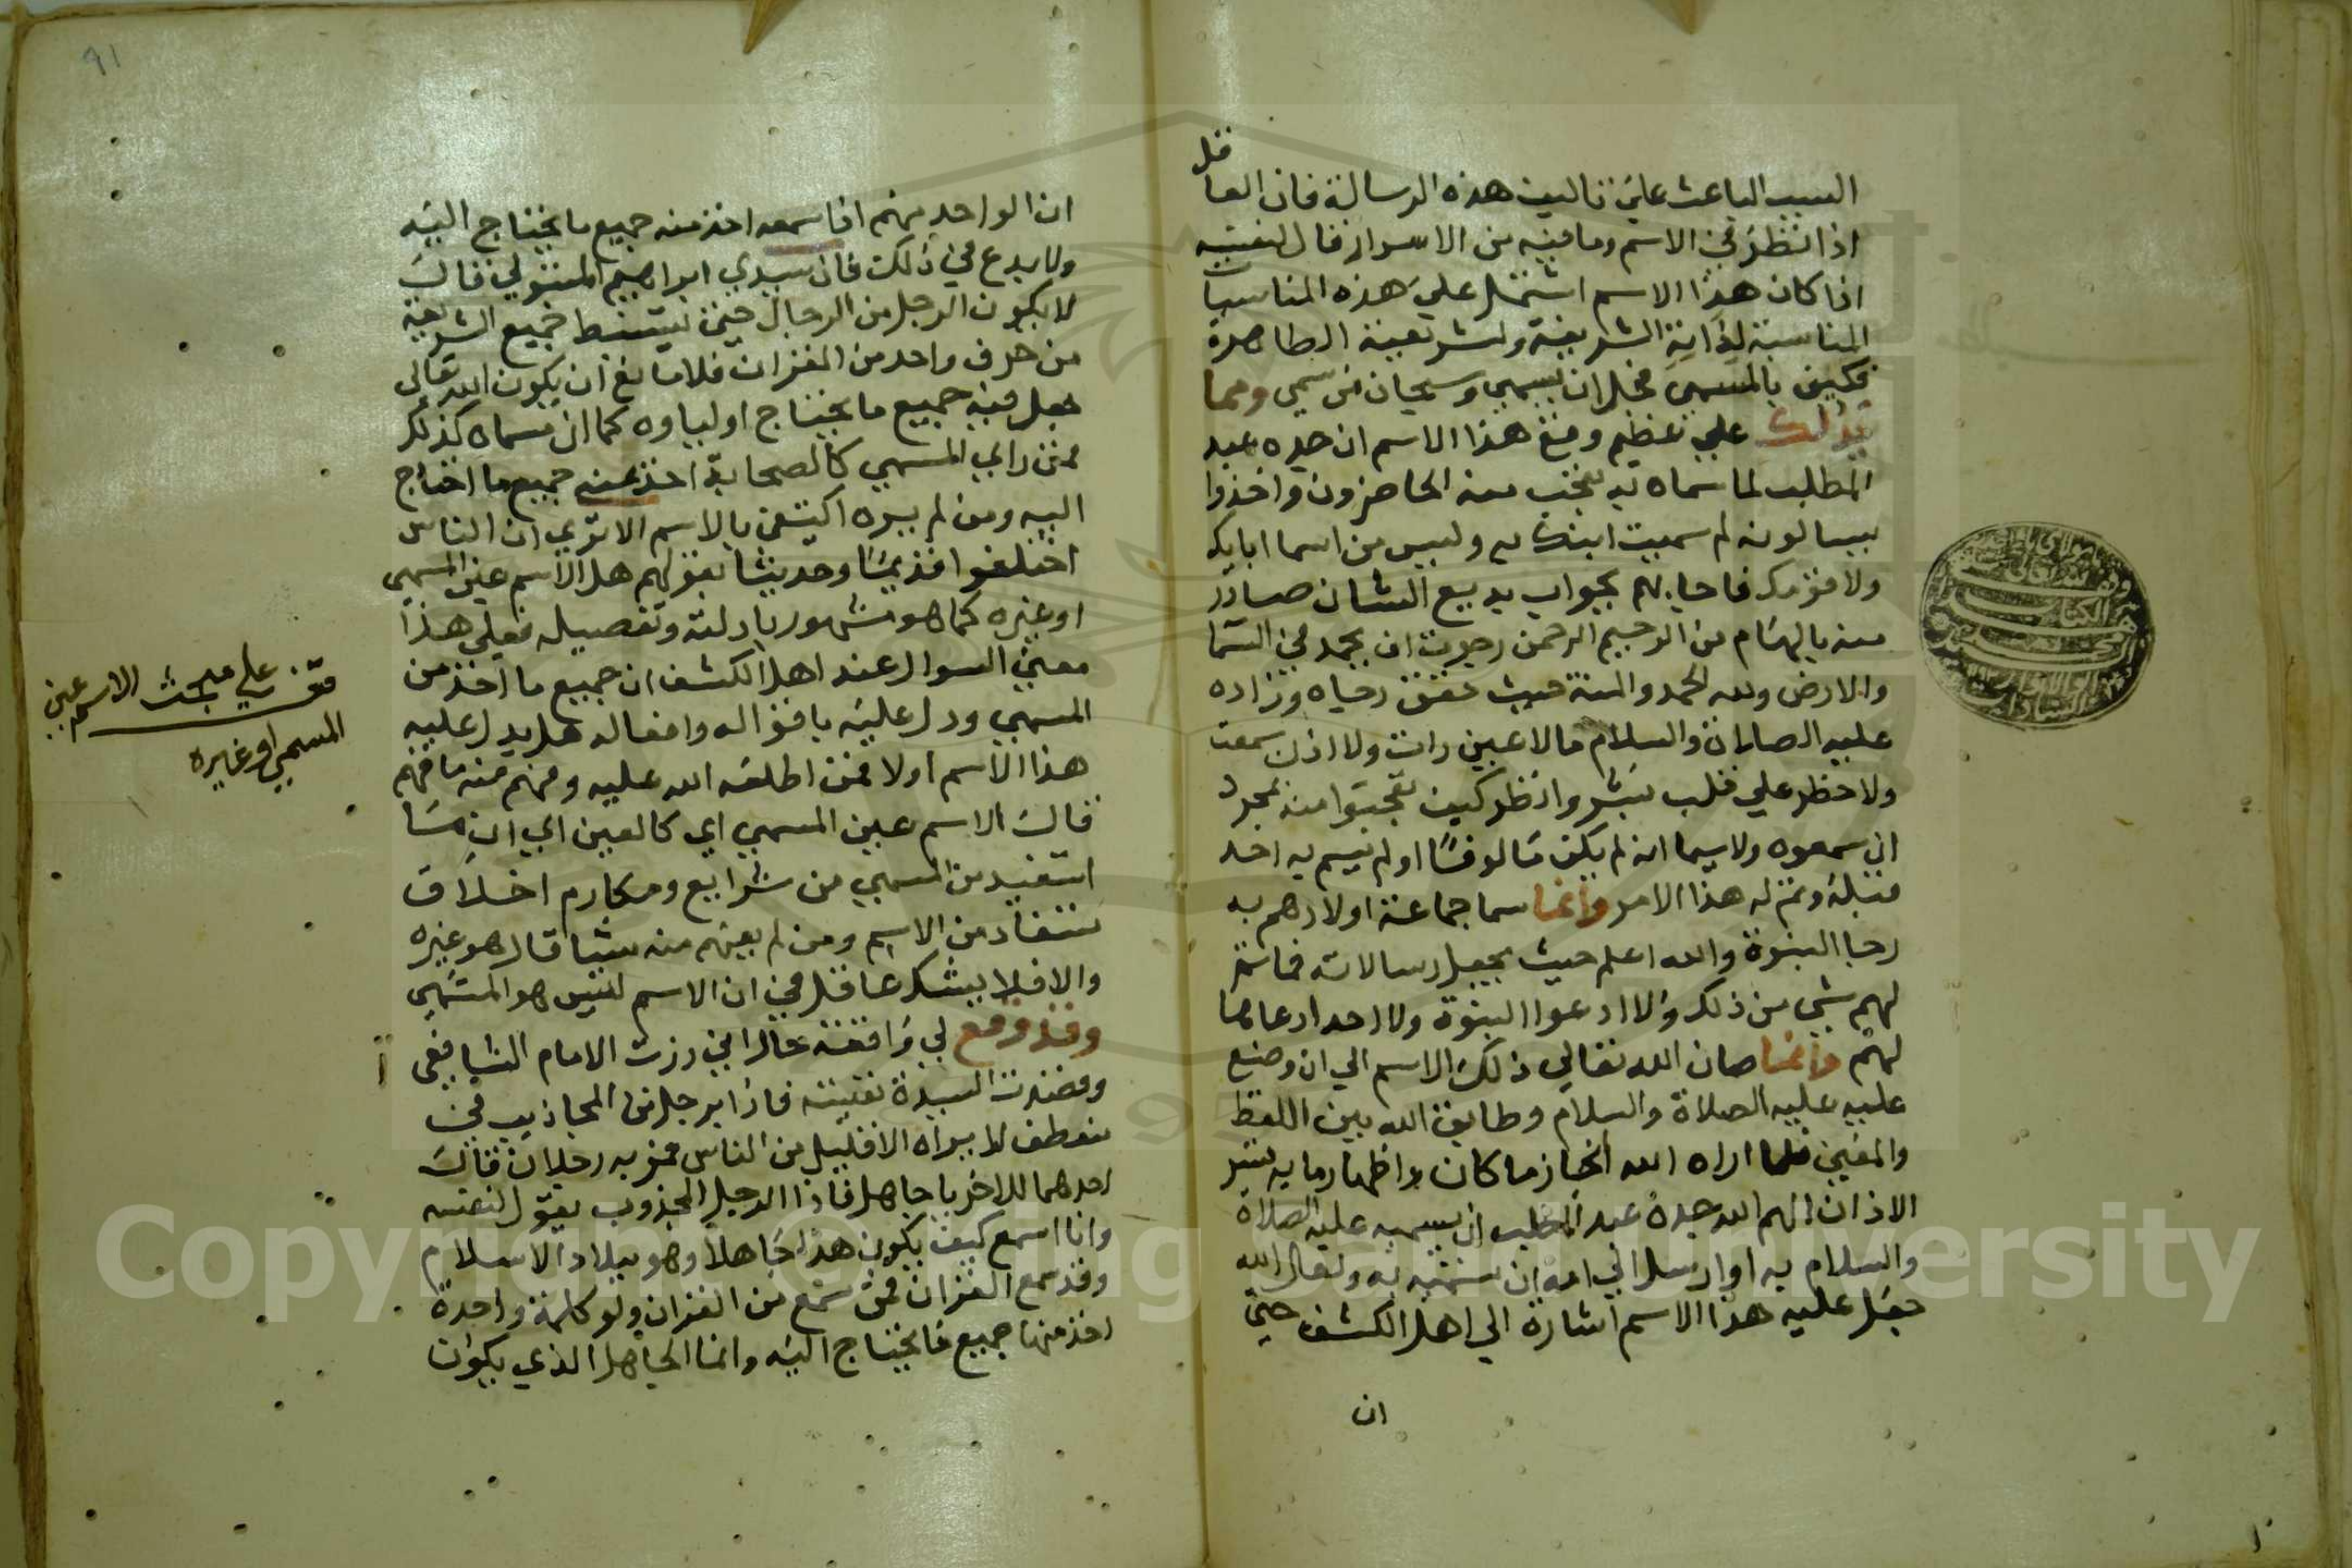 السبب الباعث علي تاليف هذه الرسالة فان العاقل
اذا نظر في الاسم وما فيه من الاسرار قال لنفسه
اذا كان هذا الاسم اشتمل علي هذه المناسبات
المناسبة لذاته الشريفة ولشريعته الطاهرة
فكيف بالمسمي فجل ان يسمي وسبحان من سمي ومما
يدلك علي عظيم وقع هذا الاسم ان جده عبد
المطلب لما سماه به تعجب منه الحاضرون واخذوا
يسالونه لم سميت ابنك به وليس من اسما ابايك
ولا قومك فاجابهم بجواب بديع الشان صادر
منه بالهام من الرحيم الرحمن رجوت ان يحمد في السما
والارض ولله الحمد والمنة حيث حقق رجاه وزاده
عليه الصلاة والسلام مالا عين رات ولا اذن سمعت
ولا خطر علي قلب بشر وانظر كيف تعجبوا منه بمجرد
ان سمعوه ولاسيما انه لم يكن مالوفا او لم يسم به احد
قبله وتم له هذا الامر وانما سما جماعة اولادهم به
رجا النبوة والله اعلم حيث يجعل رسالاته فما تم
لهم شي من ذلك ولا ادعوا النبوة ولا احد ادعاها
لهم وانما صان الله تعالي ذلك الاسم الي ان وضع
عليه عليه الصلاة والسلام وطابق الله بين اللفظ
والمعني فلما اراد الله انجاز ما كان واظهار ما به
الاذان الهم الله جده عبد المطلب ان يسميه عليه الصلاة
والسلام به او ارسل الي امه ان سميه به ولعل الله
جعل عليه هذا الاسم اشارة الي اهل الكشف حتي
ان
٩١
ان الواحد منهم اذا سمعه اخذ منه جميع ما يحتاج اليه
ولا بدع في ذلك فان سيدي ابراهيم المتبولي قال
لا يكون الرجل من الرجال حتي يستنبط جميع الشريعة
من حرف واحد من القران فلا مانع ان يكون الله تعالي
جعل فيه جميع ما يحتاج اولياوه كما ان مسماه كذلك
فمن راي المسمي كالصحابة اخذ عنه جميع ما احتاج
اليه ومن لم يره اكتفي بالاسم الا تري ان الناس
اختلفوا قديما وحديثا بقولهم هل الاسم عين المسمي
او غيره كما هو مشهور بادلته وتفصيله فعلي هذا
معني السوال عند اهل الكشف ان جميع ما اخذ من
المسمي ودل عليه باقواله وافعاله هل يدل عليه
هذا الاسم اولا فمن اطلعه الله عليه وفهم منه ما فهم
قال الاسم عين المسمي اي كالعين اي ان ما
استفيد من المسمي من شرايع ومكارم اخلاق
تستفاد من الاسم ومن لم يفهم منه شيا قال هو غيره
والا فلا يشك عاقل في ان الاسم ليس هو المسمي
وقد وقع لي واقعة حال اني زرت الامام الشافعي
وقصدت السيدة نفيسة فاذا برجل من المجاذيب في
منعطف لا يراه الا قليل من الناس فمر به رجلان قال
احدهما للاخر يا جاهل فاذا الرجل المجذوب يقول لنفسه
وانا اسمع كيف يكون هذا جاهلا وهو ببلاد الاسلام
وقد سمع القران فمن سمع من القران ولو كلمة واحدة
اخذ منها جميع ما يحتاج اليه وانما الجاهل الذي يكون
قف علي مبحث الاسم عين
المسمي او غيره
Copyright © King Saud University